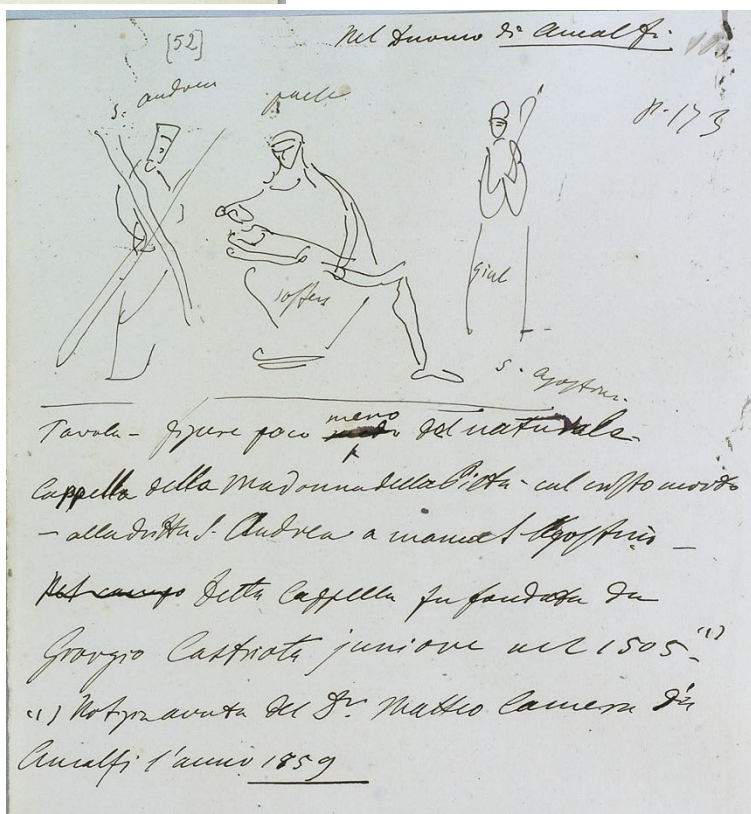 [52]
Nel Duomo di Amalfi.
p. 173
S. Andrea
gial
S. Agostino
Tavola - figure poco meno del naturale
Cappella della Madonna della Pietà - col cristo morto
- alla dritta S. Andrea a manca S. Agostino -
Detta Cappella fu fondata da
Giorgio Castriota juniore nel 1505. (1)
(1) Notizia avuta del Dr. Matteo Camera di
Amalfi l'anno 1859